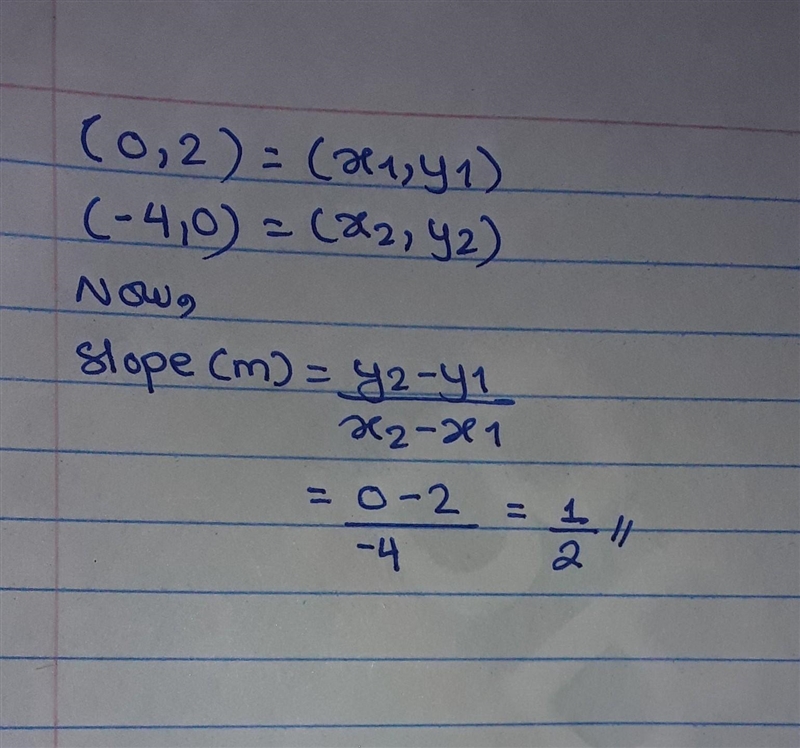 (0,2) = (x1,y1)
(-4,0) = (x2,y2)
Now,
Slope (m) = y2-y1
x2-x1
= 0-2 = 1
-4 2 //